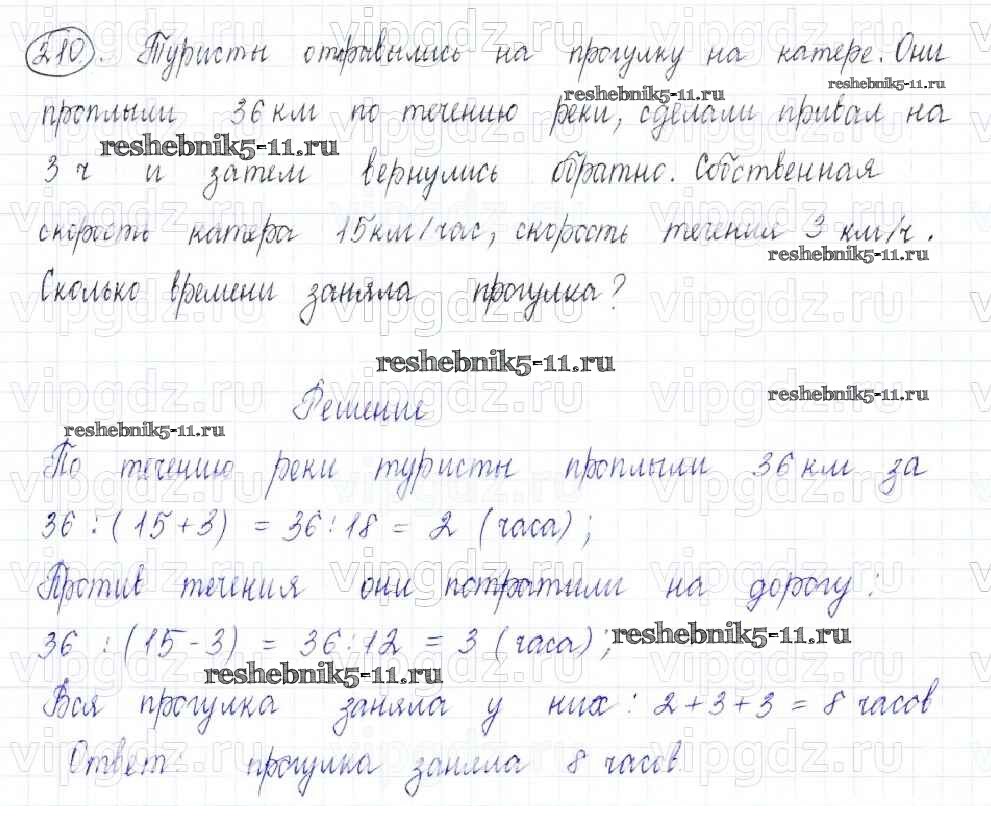 210. Туристы отправылись на прогулку на катере. Они
проплыли 36 км по течению реки, сделали привал на
3 ч и затем вернулись обратно. Собственная
скорость катера 15 км/час, скорость течения 3 км/ч.
Сколько времени заняла прогулка?
reshebnik5-11.ru
Решение
По течению реки туристы проплыли 36 км за
36 : (15 + 3) = 36 : 18 = 2 (часа);
Против течения они потратили на дорогу:
36 : (15 - 3) = 36 : 12 = 3 (часа);
Вся прогулка заняла у них: 2 + 3 + 3 = 8 часов
Ответ: прогулка заняла 8 часов